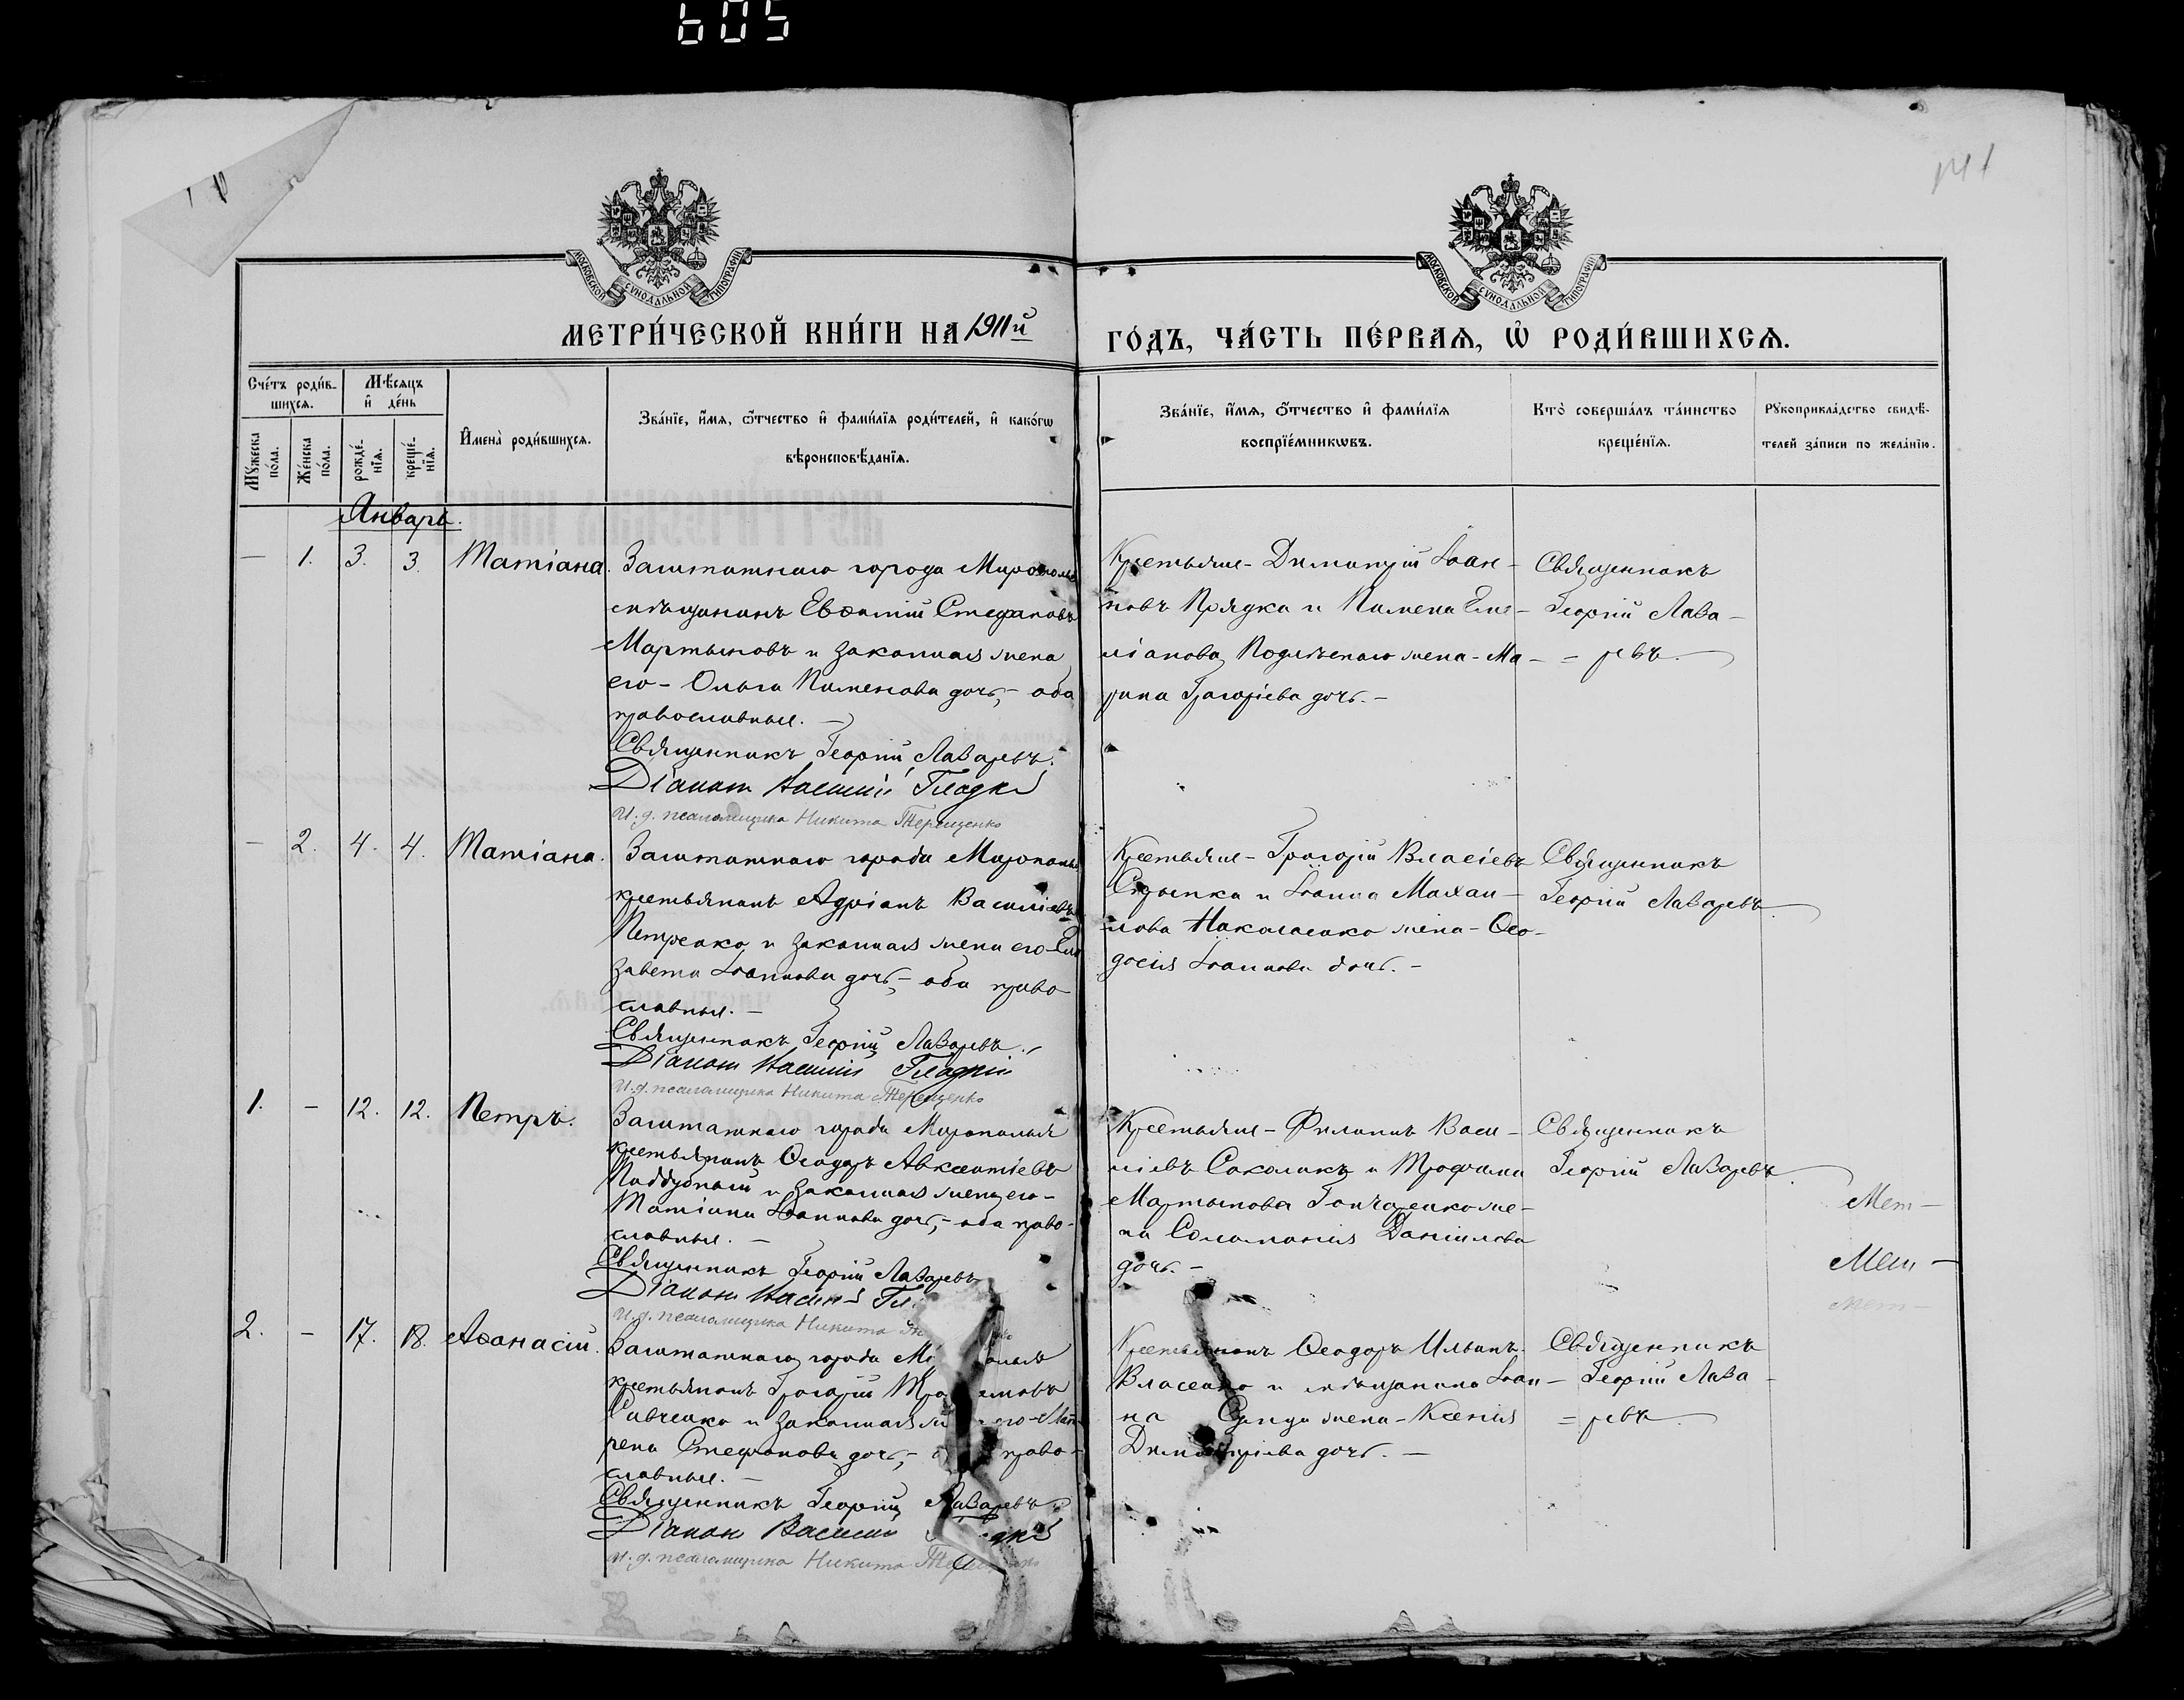 605
141
МОСКОВСКОЙ СѴНОДАЛЬНОЙ ТИПОГРАФІИ
МОСКОВСКОЙ СѴНОДАЛЬНОЙ ТИПОГРАФІИ
МЕТРИ́ЧЕСКОЙ КНИ́ГИ НА 1911й
ГО́ДЪ, ЧА́СТЬ ПЕ́РВАѦ, Ѽ РОДИ́ВШИХСѦ.
Сче́тъ роди́в-
шихсѧ.
Мѣ́сѧцъ
и҆ де́нь
Мꙋ́жеска
по́ла.
Же́нска
по́ла.
рожде́-
нїѧ.
креще́-
нїѧ.
И҆мена̀ роди́вшихсѧ.
Зва́нїе, и҆́мѧ, ѻ҆́тчество и҆ фами́лїѧ роди́телей, и҆ како́гѡ
вѣроисповѣ́данїѧ.
Зва́нїе, и҆́мѧ, ѻ҆́тчество и҆ фами́лїѧ
воспрїе́мникѡвъ.
Кто̀ соверша́лъ та́инство
креще́нїѧ.
Рꙋкоприкла́дство свидѣ́-
телей за́писи по жела́нїю.
Январь.
— 1. 3. 3. Татіана.
Заштатнаго города Мирополья
мѣщанинъ Евѳимій Стефановъ
Мартыновъ и законная жена
его - Ольга Пименова дочь, - оба
православные. —
Священникъ Георгій Лазаревъ.
Діаконъ Василій Гладкій
И. д. псаломщика Никита Терещенко
Крестьяне - Димитрій Іоан-
новъ Прядка и Пимена Еме-
ліанова Подлѣснаго жена - Ма-
рина Григоріева дочь. -
Священникъ
Георгій Лаза-
= ревъ.
— 2. 4. 4. Татіана.
Заштатнаго города Мирополья
крестьянинъ Адріанъ Василіевъ
Петренко и законная жена его - Ели
завета Іоаннова дочь, - оба право
славные. —
Священникъ Георгій Лазаревъ.
Діаконъ Василій Гладкій
И. д. псаломщика Никита Терещенко
Крестьяне - Григорій Власіевъ
и Іоанна Михаи-
лова Николаенко жена - Ѳео-
досія Іоаннова дочь. -
Священникъ
Георгій Лазаревъ.
1. — 12. 12. Петръ.
Заштатнаго города Мирополья
крестьянинъ Ѳеодоръ Авксентіевъ
Поддубный и законная жена его -
Татіана Іоаннова дочь, - оба право-
славные. —
Священникъ Георгій Лазаревъ
Діаконъ Василій Гл
И. д. псаломщика Никита Те
Крестьяне - Филиппъ Васи-
ліевъ Соколикъ и Трофима
Мартынова Гончаренко же-
на Соломонія Даніилова
дочь. -
Священникъ
Георгій Лазаревъ.
2. — 17. 18. Аѳанасій.
Заштатнаго города Ми полья
крестьянинъ Григорій Тро имовъ
Савченко и законная ж его - Мат-
рена Стефанова дочь, - о право-
славные. —
Священникъ Георгій Лазаревъ
Діаконъ Василій дкій
И. д. псаломщика Никита Тере
Крестьянинъ Ѳеодоръ Ильинъ
Власенко и мѣщанина Іоан-
на жена - Ксенія
Димитріева дочь. —
Священникъ
Георгій Лаза-
= ревъ.